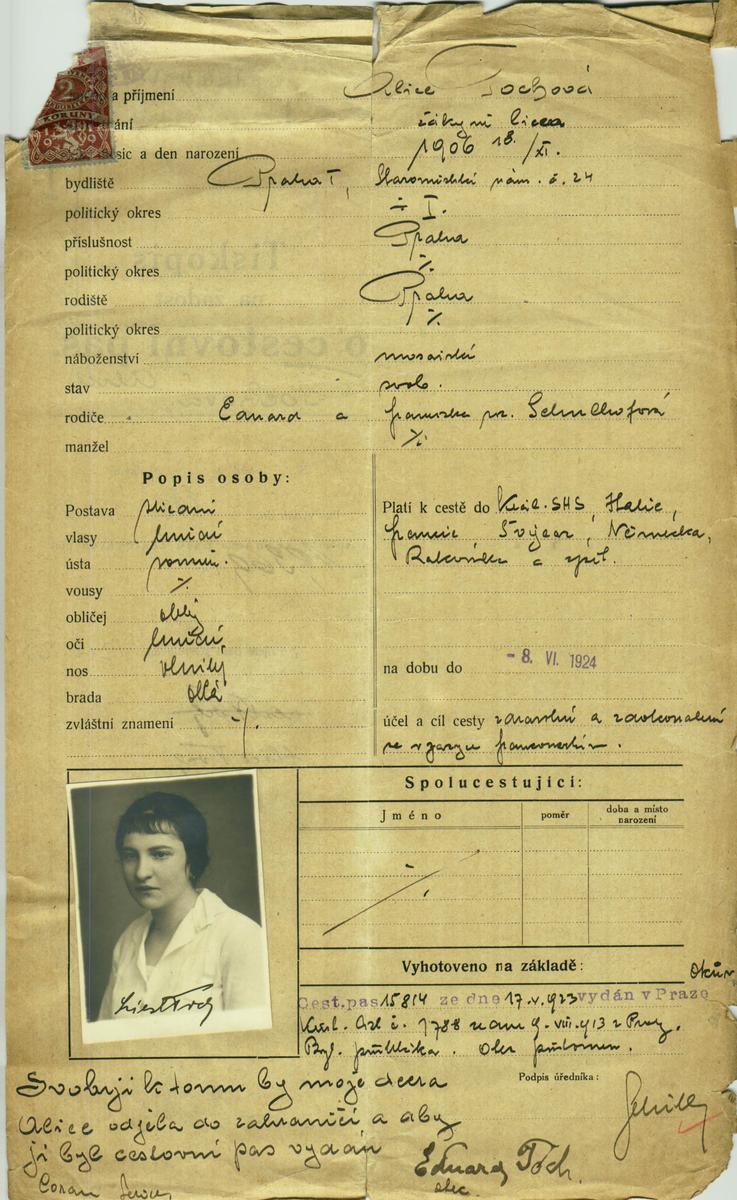 2
KORUNY
a příjmení Alice Tochová
žákyně licea
a den narození 1906 18./XI.
bydliště Praha I, Staroměstské nám. č. 24
politický okres I.
příslušnost Praha
politický okres
rodiště Praha
politický okres
náboženství mosaické
stav svob.
rodiče Eduard a Františka
manžel
Popis osoby:
Postava střední
vlasy hnědé
ústa
vousy
obličej oblý
oči hnědé
nos
brada oblá
zvláštní znamení
Platí k cestě do Král. SHS, Italie,
Francie, Švýcar, Německa,
Rakouska a zpět.
na dobu do - 8. VI. 1924
účel a cíl cesty zdravotní a zdokonalení
se v jazyku francouzském.
Spolucestující:
Jméno poměr doba a místo narození
Vyhotoveno na základě:
Cest. pas 15814 ze dne 17.V.923 vydán v Praze
č. 1788 ze dne 9. VIII. 913 z Prahy.
Byl. přihláška. Otec přítomen.
Podpis úředníka:
Svoluji k tomu by moje dcera
Alice odjela do zahraničí a aby
jí byl cestovní pas vydán
Eduard Toch.
otec.